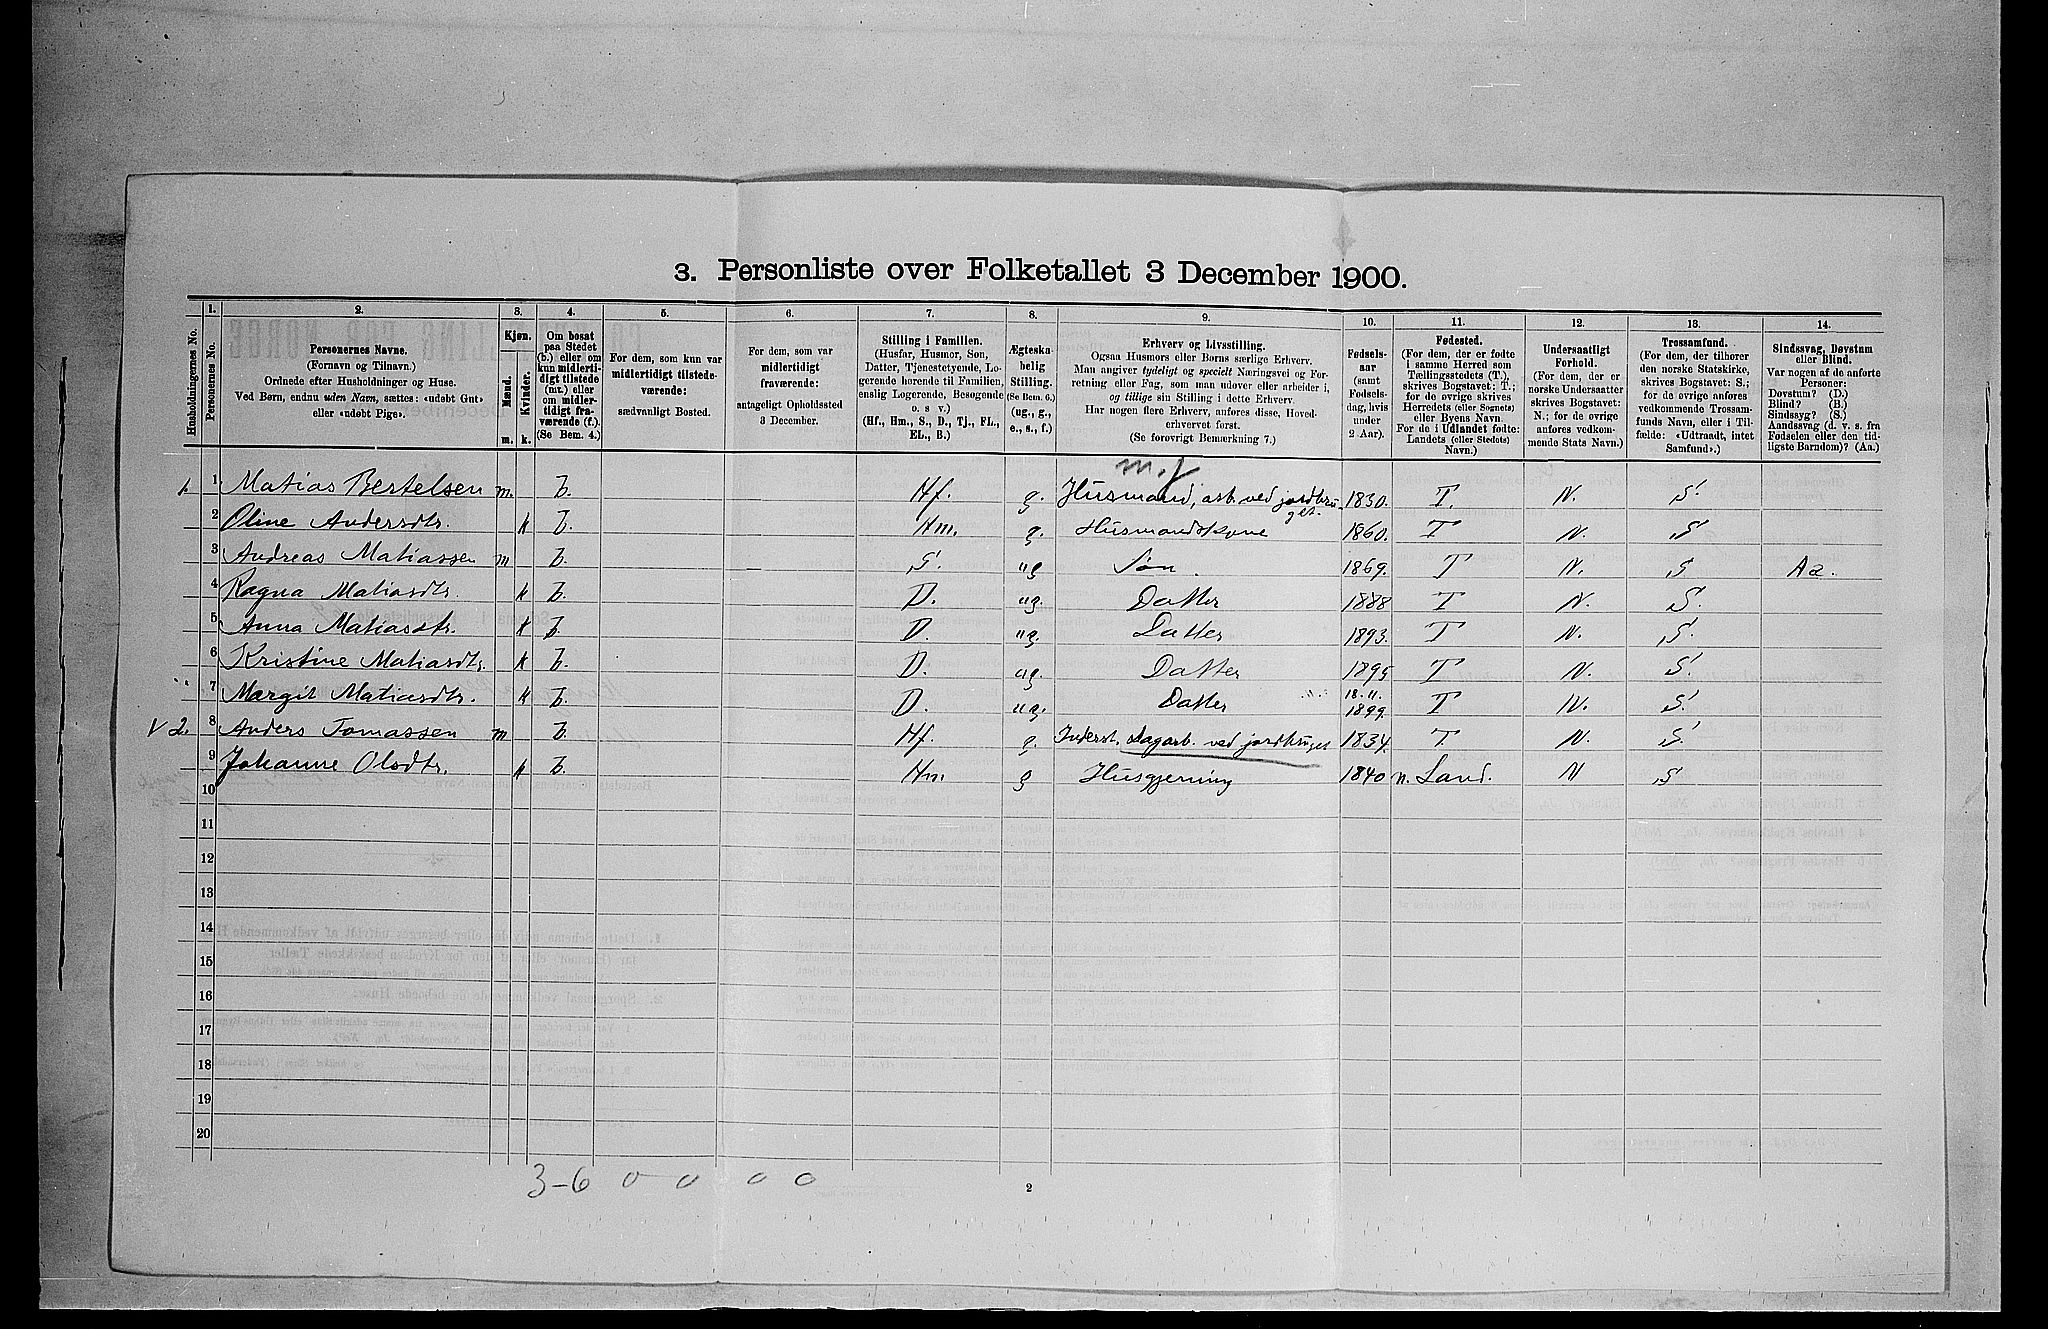 3. Personliste over Folketallet 3 December 1900.
Husholdningernes No.
1.
Personernes No.
2.
Personernes Navne.
(Fornavn og Tilnavn.)
Ordnede efter Husholdninger og Huse.
Ved Børn, endnu uden Navn, sættes: «udøbt Gut»
eller «udøbt Pige».
3.
Kjøn.
Mænd.
Kvinder.
m. k.
4.
Om bosat
paa Stedet
(b.) eller om
kun midlerti-
digt tilstede
(mt.) eller
om midler-
tidigt fra-
værende (f.).
(Se Bem. 4.)
5.
For dem, som kun var
midlertidigt tilstede-
værende:
sædvanligt Bosted.
6.
For dem, som var
midlertidigt
fraværende:
antageligt Opholdssted
3 December.
7.
Stilling i Familien.
(Husfar, Husmor, Søn,
Datter, Tjenestetyende, Lo-
gerende hørende til Familien,
enslig Logerende, Besøgende
o. s. v.)
(Hf., Hm., S., D., Tj., FL.,
EL., B.)
8.
Ægteska-
belig
Stilling.
(Se Bem. 6.)
(ug., g.,
e., s., f.)
9.
Erhverv og Livsstilling.
Ogsaa Husmors eller Børns særlige Erhverv.
Man angiver tydeligt og specielt Næringsvei og For-
retning eller Fag, som man udøver eller arbeider i,
og tillige sin Stilling i dette Erhverv.
Har nogen flere Erhverv, anføres disse, Hoved-
erhvervet først.
(Se forøvrigt Bemærkning 7.)
10.
Fødsels-
aar
(samt
Fødsels-
dag, hvis
under
2 Aar).
11.
Fødested.
(For dem, der er fødte
i samme Herred som
Tællingsstedets (T.),
skrives Bogstavet: T.;
for de øvrige skrives
Herredets (eller Sognets)
eller Byens Navn.
For de i Udlandet fødte:
Landets (eller Stedets)
Navn.)
12.
Undersaatligt
Forhold.
(For dem, der er
norske Undersaatter
skrives Bogstavet:
N.; for de øvrige
anføres vedkom-
mende Stats Navn.)
13.
Trossamfund.
(For dem, der tilhører
den norske Statskirke,
skrives Bogstavet: S.;
for de øvrige anføres
vedkommende Trossam-
funds Navn, eller i Til-
fælde: «Udtraadt, intet
Samfund».)
14.
Sindssvag, Døvstum
eller Blind.
Var nogen af de anførte
Personer:
Døvstum? (D.)
Blind? (B.)
Sindssyg? (S.)
Aandssvag (d. v. s. fra
Fødselen eller den tid-
ligste Barndom)? (Aa.)
m.f
1. 1 Matias Bertelsen m. b. Hf. g. Husmand, arb. ved jordbru- 1830. T. N. S.
get.
2 Oline Andersdtr. k b. Hm. g. Husmandskone 1860. T N. S
3 Andreas Matiassen m b. S. ug Søn. 1869. T N. S Aa.
4 Ragna Matiasdtr. k b. D. ug. Datter 1888 T N. S.
5 Anna Matiasdtr. k b. D. ug. Datter 1893. T N. S.
6 Kristine Matiasdtr. k b. D. ug. Datter 1895 T N. S.
7 Margit Matiasdtr. k b. D. ug. Datter 18.11. 1899. T N. S.
V 2. 8 Anders Tomassen m b. Hf. g. Inderst. Dagarb. ved jordbruget 1834. T. N. S.
9 Johanne Olsdtr. k b. Hm. g Husgjerning 1840 n. Land. N S
10
11
12
13
14
15
16
17
18
19
20
3-6 0 0 0 0
2